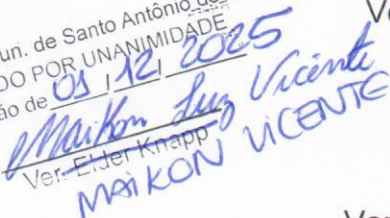 Ve
un. de Santo Antônio do
DO POR UNANIMIDADE
ão de 01 / 12 / 2025
Maikon Luz Vicente
Ver. Elder Knapp
MAIKON VICENTE
Ver